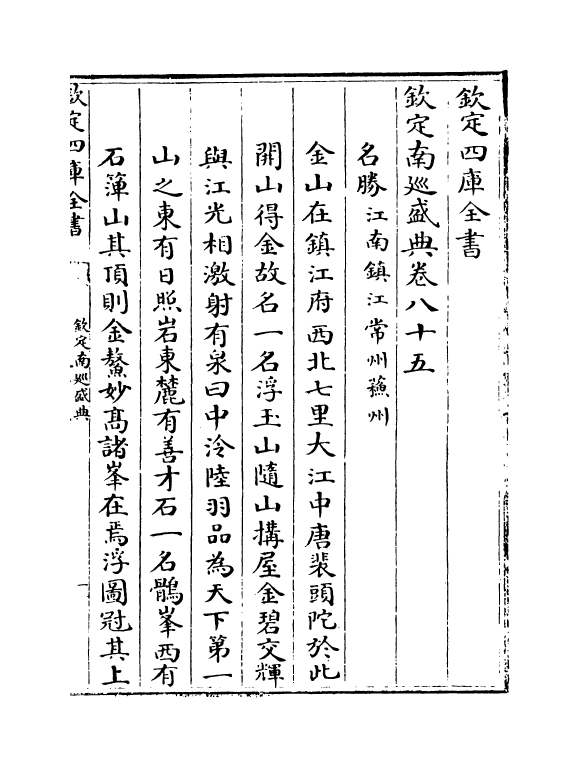 欽定四庫全書
欽定南廵盛典卷八十五
名勝江南鎮江常州蘓州
金山在鎮江府西北七里大江中唐裴頭陀於此
開山得金故名一名浮玉山隨山搆屋金碧交輝
與江光相激射有泉曰中泠陸羽品為天下第一
山之東有日照岩東麓有善才石一名鶻峯西有
石簰山其頂則金鰲妙髙諸峯在焉浮圖冠其上
欽定四庫全書
欽定南廵盛典
一